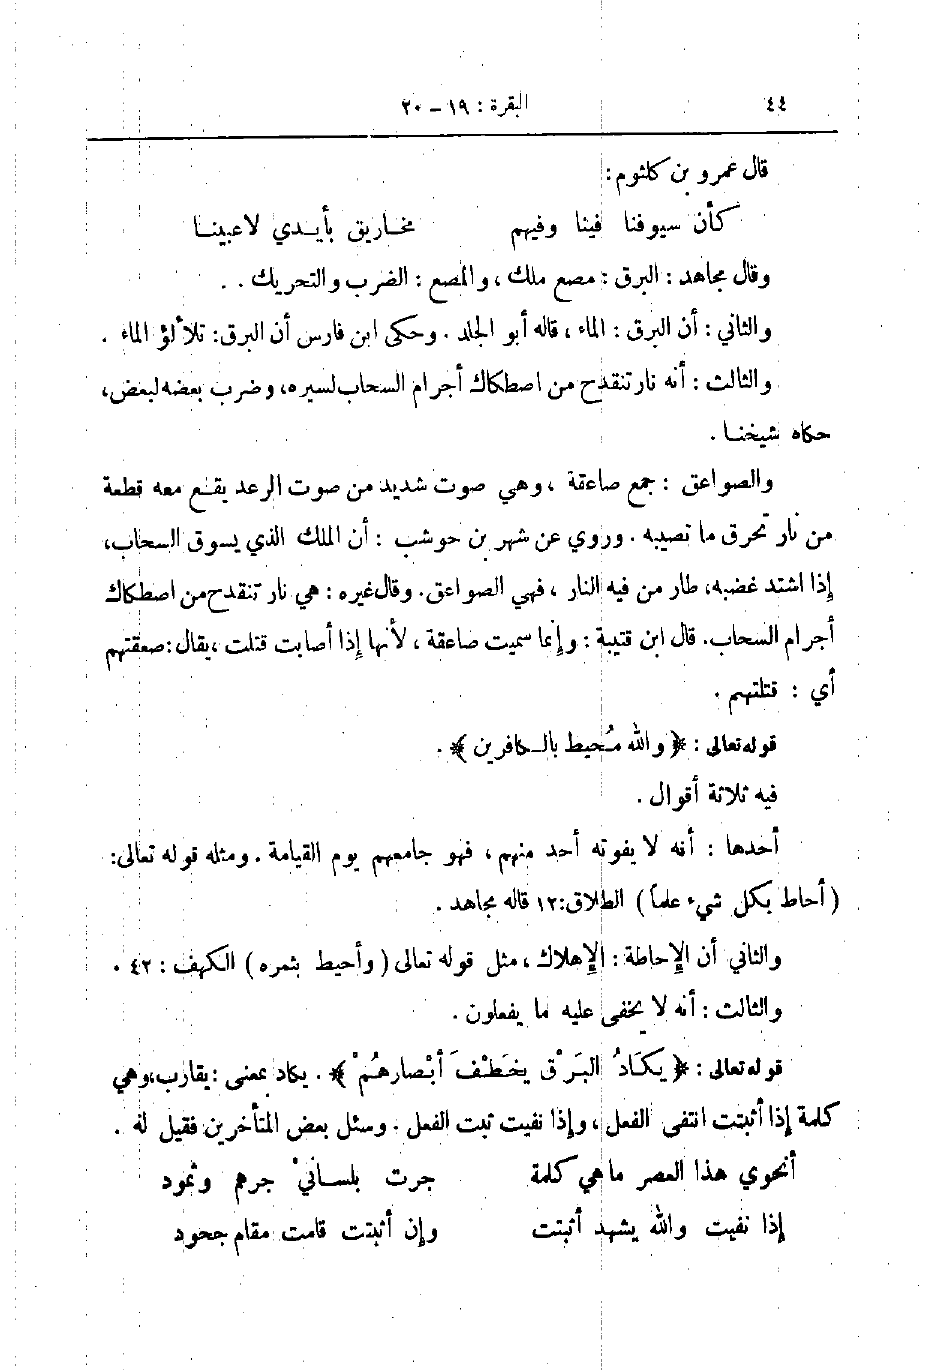 ٤٤ البقرة : ١٩ – ٢٠
قال عمرو بن كلثوم:
كأن سيوفنا فينا وفيهم مخاريق بأيدي لاعبينا
وقال مجاهد : البرق : مصع ملك ، والمصع : الضرب والتحريك . .
والثاني : أن البرق : الماء ، قاله أبو الجلد . وحكى ابن فارس أن البرق: تلألؤ الماء .
والثالث : أنه نار تنقدح من اصطكاك أجرام السحاب لسيره، وضرب بعضه لبعض،
حكاه شيخنا .
والصواعق : جمع صاعقة ، وهي صوت شديد من صوت الرعد يقع معه قطعة
من نار تحرق ما تصيبه . وروي عن شهر بن حوشب : أن الملك الذي يسوق السحاب،
إذا اشتد غضبه، طار من فيه النار ، فهي الصواعق. وقال غيره : هي نار تنقدح من اصطكاك
أجرام السحاب. قال ابن قتيبة : وإنما سميت صاعقة ، لأنها إذا أصابت قتلت ، يقال : صعقتهم
أي : قتلتهم .
قوله تعالى : ﴿ والله مُحيط بالكافرين ﴾ .
فيه ثلاثة أقوال .
أحدها : أنه لا يفوته أحد منهم ، فهو جامعهم يوم القيامة . ومثله قوله تعالى:
( أحاط بكل شيء علماً ) الطلاق: ١٢ قاله مجاهد .
والثاني أن الإحاطة : الإهلاك ، مثل قوله تعالى ( وأحيط بثمره ) الكهف : ٤٢ .
والثالث : أنه لا يخفى عليه ما يفعلون .
قوله تعالى : ﴿ يكَادُ البَرْق يخطَفْ أبْصارهُمْ ﴾ . يكاد بمعنى : يقارب، وهي
كلمة إذا أثبتت انتفى الفعل ، وإذا نفيت ثبت الفعل . وسئل بعض المتأخرين فقيل له .
أنحوي هذا العصر ما هي كلمة جرت بلساني جرهم وثمود
إذا نفيت والله يشهد أثبتت وإن أثبتت قامت مقام جحود